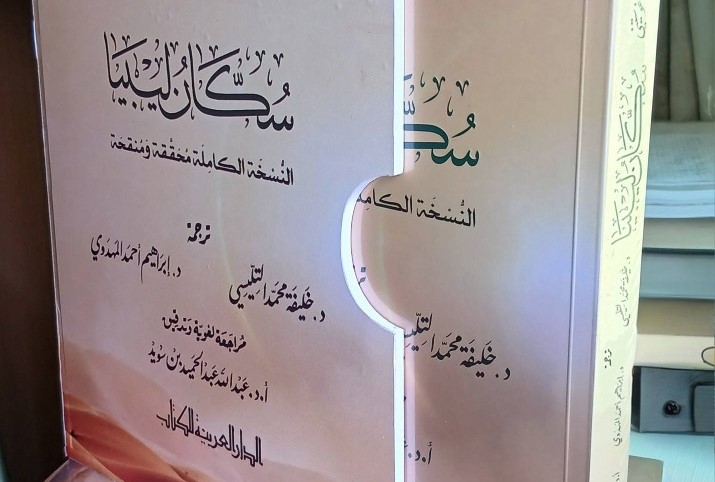 سُكَّان لِيبيَا
النُسْخَة الكامِلَة مُحَقَّقة وَمُنقحَة
ترجمة
د. خَليفَة محمَّد التِلّيسي
د. إبراهيم أحمَد المهدوي
مُراجَعَة لغوية وتدقيق
أ.د. عبد الله عبد الحميد بن سويد
الدار العربية للكتاب
سُكَّ
النُسْخَة الكامِ
د. خَليفَة محمَّد التِلّي
أ.د.
سُكَّان لِيبيَا
د. خليفة محمد التليسي
ترجمة
د. إبراهيم أحمد المهدوي